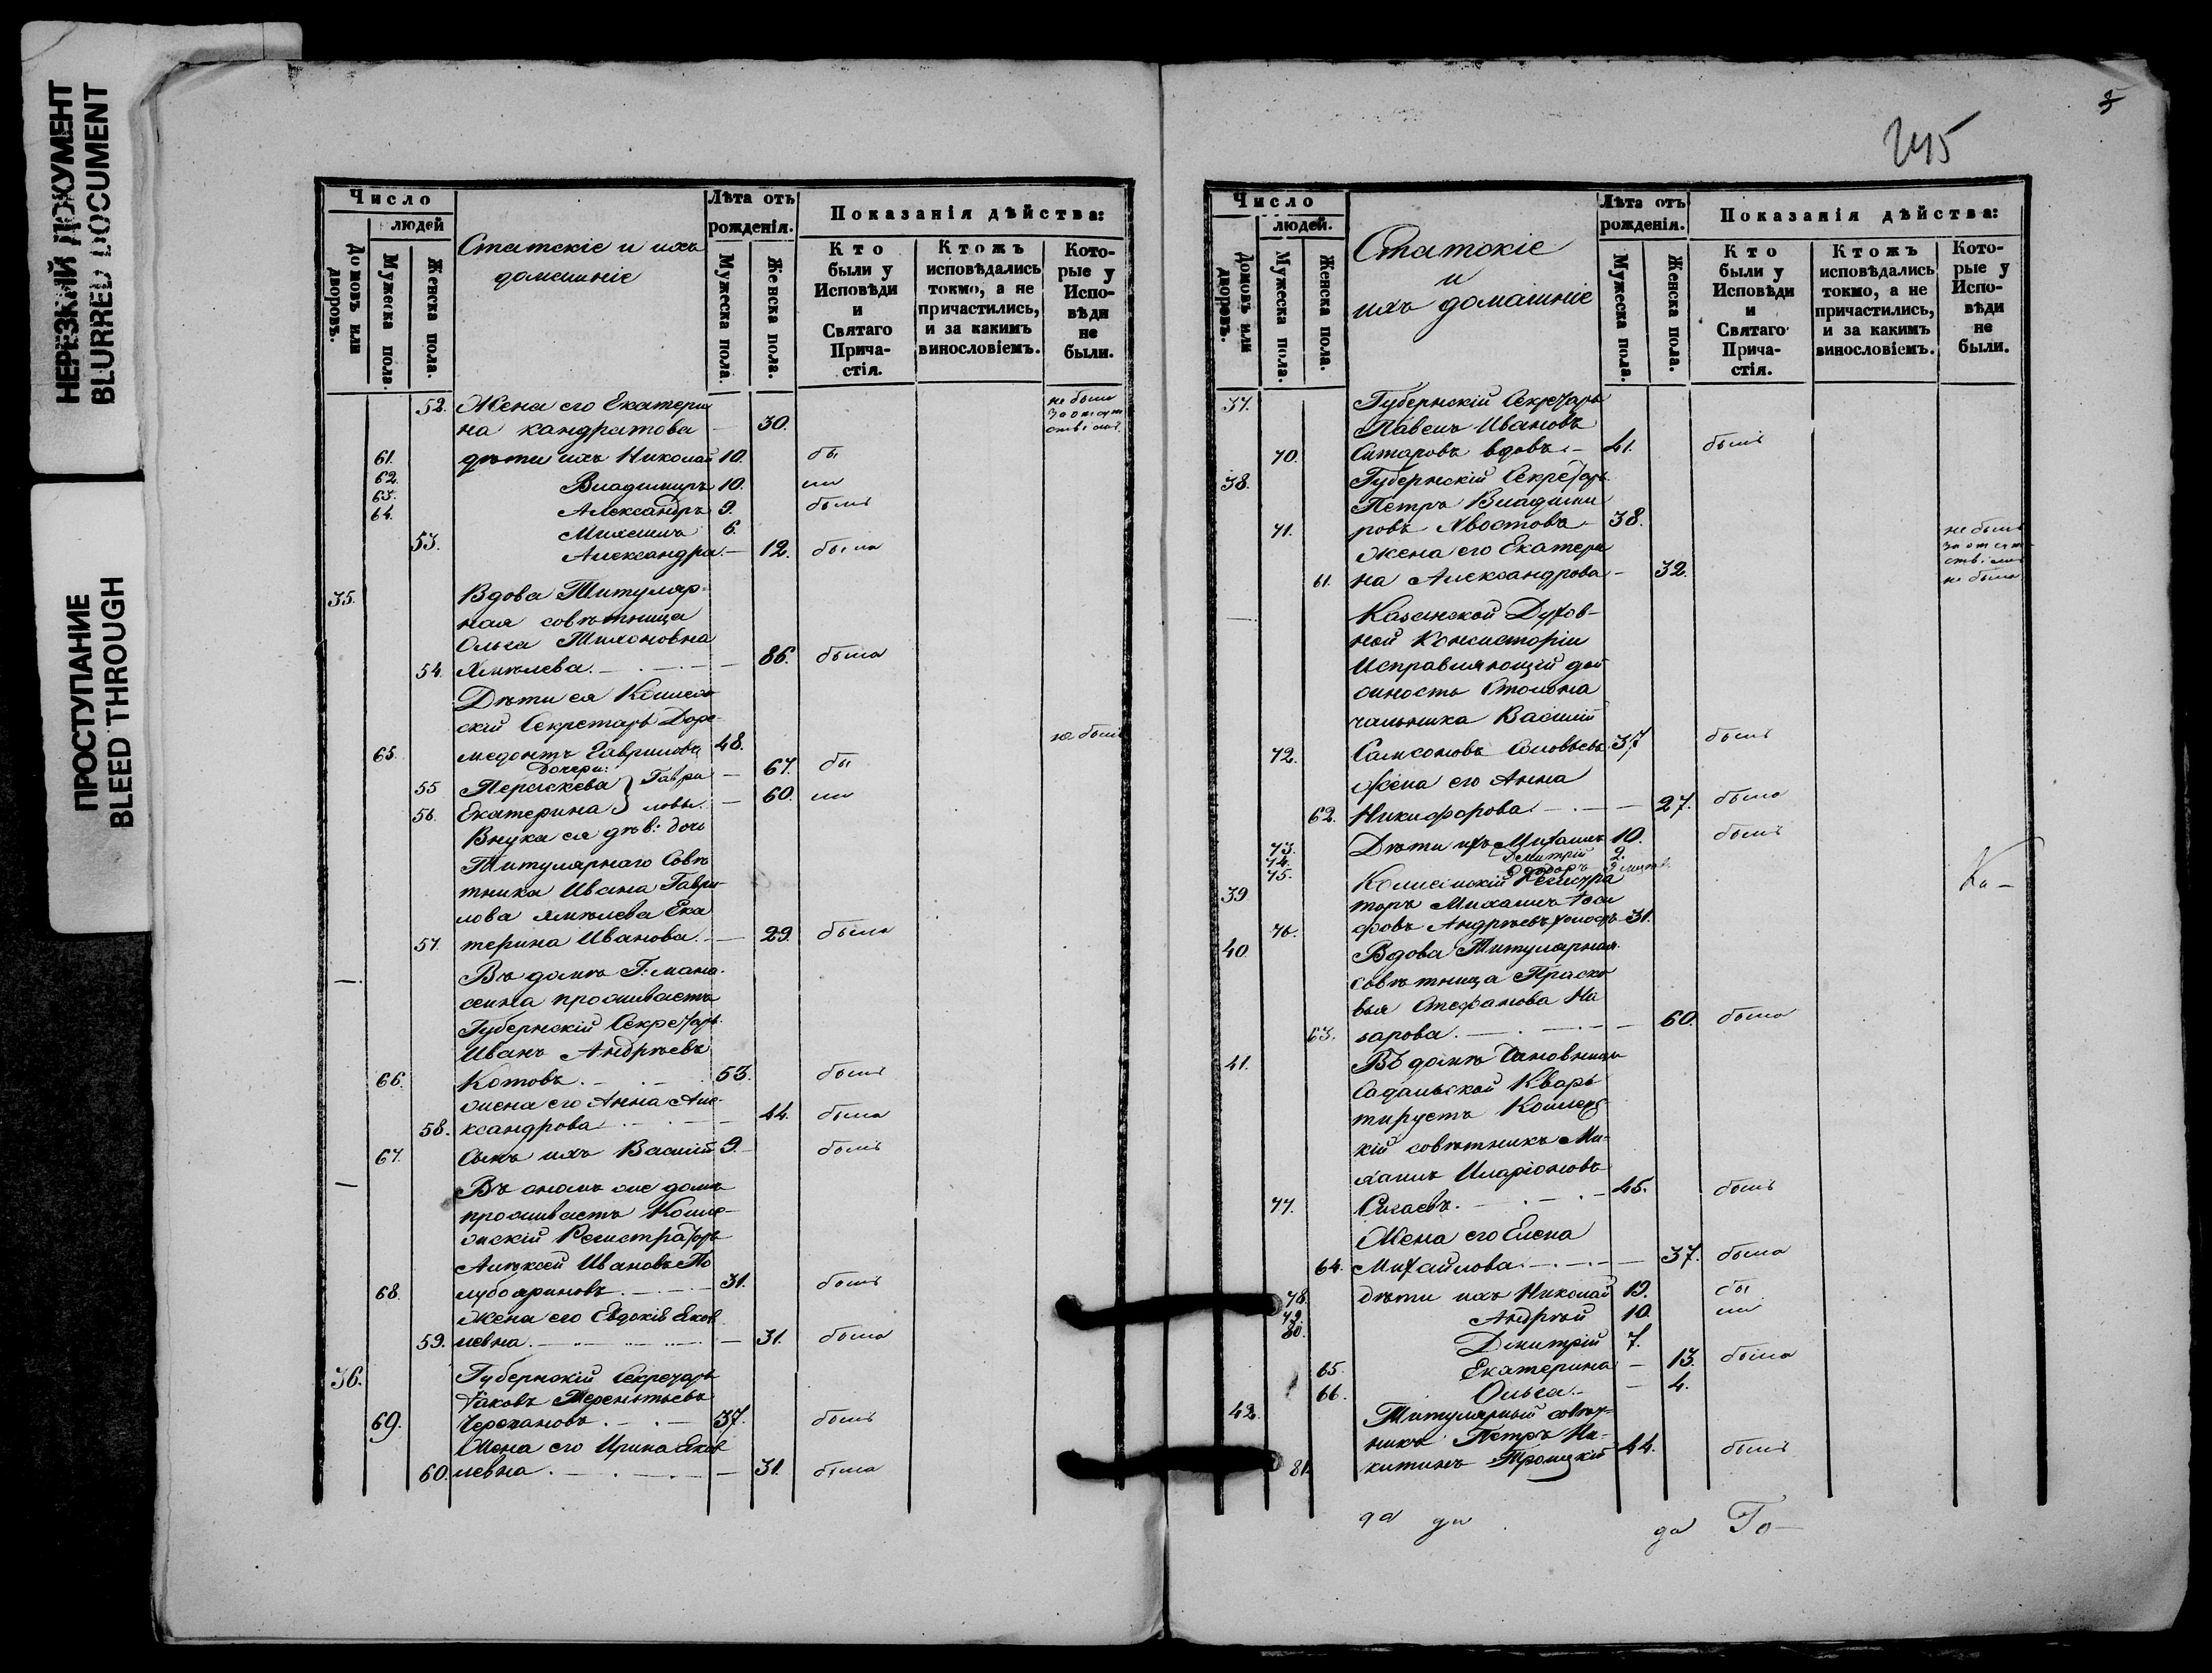 НЕРЕЗКИЙ ДОКУМЕНТ
BLURRED DOCUMENT
ПРОСТУПАНИЕ
BLEED THROUGH
Число
людей
Домовъ или дворовъ.
Мужеска пола.
Женска пола.
Статскіе и ихъ
домашніе
Лѣта отъ
рожденія.
Мужеска пола.
Женска пола.
Показанія дѣйства:
Кто
были у
Исповѣди
и
Святаго
Прича-
стія.
Ктожъ
исповѣдались
токмо, а не
причастились,
и за какимъ
винословіемъ.
Кото-
рые у
Испо-
вѣди
не
были.
52. Жена его Екатери
на Кандратова — 30. не была за отсут ствіемъ
61. дѣти ихъ Николай 10. бы
62. Владимиръ 10. ли
63. Александръ 9. былъ
64. Михаилъ 6.
53. Александра — 12. была
35. Вдова Титуляр-
ная совѣтница
Ольга Тихоновна
54. Хмѣлева — 86. была
Дѣти ея Коллеж
скій Секретарь Доре-
65. медонтъ Гавриловъ 48. не былъ
Дочери:
55 Пераскева } Гаври — 67. бы
56. Екатерина } ловы — 60. ли
Внука ея дѣв: дочь
Титулярнаго Совѣ
тника Ивана Гаври-
лова Хмѣлева Ека
57. терина Иванова — 29. была
— Въ домѣ Г: Мана-
сеина проживаетъ
Губернскій Секретарь
Иванъ Андреевъ
66. Котовъ 53. былъ
жена его Анна Але-
58. ксандрова — 44. была
67. Сынъ ихъ Василій 9. былъ
— Въ ономъ же домѣ
проживаетъ Колле-
жскій Регистраторъ
Алексѣй Ивановъ По
68. лубояриновъ 31. былъ
Жена его Евдокія Яков
59. левна — 31. была
36. Губернскій Секретарь
Яковъ Терентьевъ
69. Черепановъ 37. былъ
Жена его Ирина Яков
60. левна — 31. была
5
245
Число
людей.
Домовъ или дворовъ.
Мужеска пола.
Женска пола.
Статскіе
и
ихъ домашніе
Лѣта отъ
рожденія.
Мужеска пола.
Женска пола.
Показанія дѣйства:
Кто
были у
Исповѣди
и
Святаго
Прича-
стія.
Ктожъ
исповѣдались
токмо, а не
причастились,
и за какимъ
винословіемъ.
Кото-
рые у
Испо-
вѣди
не
были.
37. Губернскій Секретарь
Павелъ Ивановъ
70. Ситаровъ вдовъ 41. былъ
38. Губернскій Секретарь
Петръ Владими
71. ровъ Хвостовъ 38. не былъ за отсут ствіемъ
жена его Екатери
61. на Александрова — 32. не была
— Казанской Духов-
ной Консисторіи
Исправляющій до
жность Столона
чальника Василій
72. Самсоновъ Соловьевъ 37 былъ
Жена его Анна
62. Никифорова — 27. была
73. Дѣти ихъ Михаилъ 10. былъ
74. Дмитрій 2.
75. Ѳедоръ
39 Коллежскій Регистра
торъ Михаилъ Іоси
76. фовъ Андреевъ холостъ 31. Ка-
40 Вдова Титулярная
совѣтница Праско
вья Стефанова На
63. зарова — 60. была
41. Въ домѣ Чиновницы
Садальской Квар
тируетъ Коллеж-
кій совѣтникъ Ми-
хаилъ Иларіоновъ
77. Сикаевъ 45. былъ
Жена его Елена
64. Михайлова — 37. была
78. дѣти ихъ Николай 19. бы
79. Андрей 10. ли
80. Дмитрій 7.
65. Екатерина — 13. была
66. Ольга — 4.
42. Титулярный совѣт-
никъ Петръ Ни-
81. китинъ Троицкій 44. былъ
да да да То-